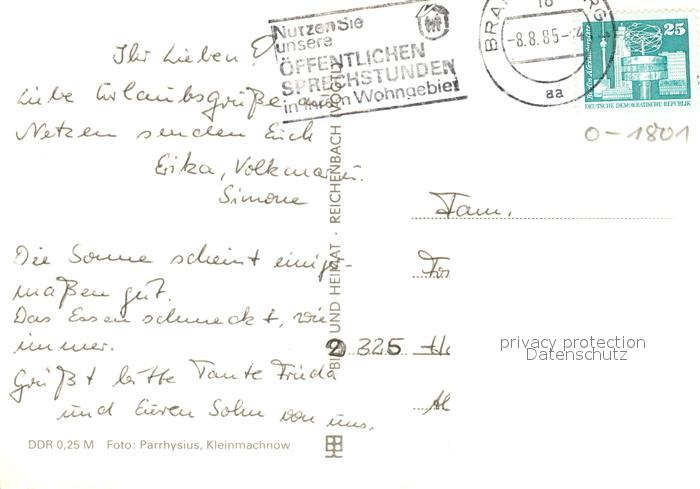 Nutzen Sie
unsere
ÖFFENTLICHEN
SPRECHSTUNDEN
in Ihrem Wohngebiet
BRANDENBURG 1
18
-8.8.85-
aa
25
Berlin, Alexanderplatz
DEUTSCHE DEMOKRATISCHE REPUBLIK
0-1801
Ihr Lieben!
Liebe Urlaubsgrüße aus
Netzen senden Euch
Erika, Volkmar u.
Simone
Die Sonne scheint einiger-
maßen gut.
Das Essen schmeckt, wie
immer.
Grüßt bitte Tante Frieda
und Euren Sohn von uns.
BILD UND HEIMAT · REICHENBACH (VOGTL)
Fam.
2325
privacy protection
Datenschutz
DDR 0,25 M Foto: Parrhysius, Kleinmachnow